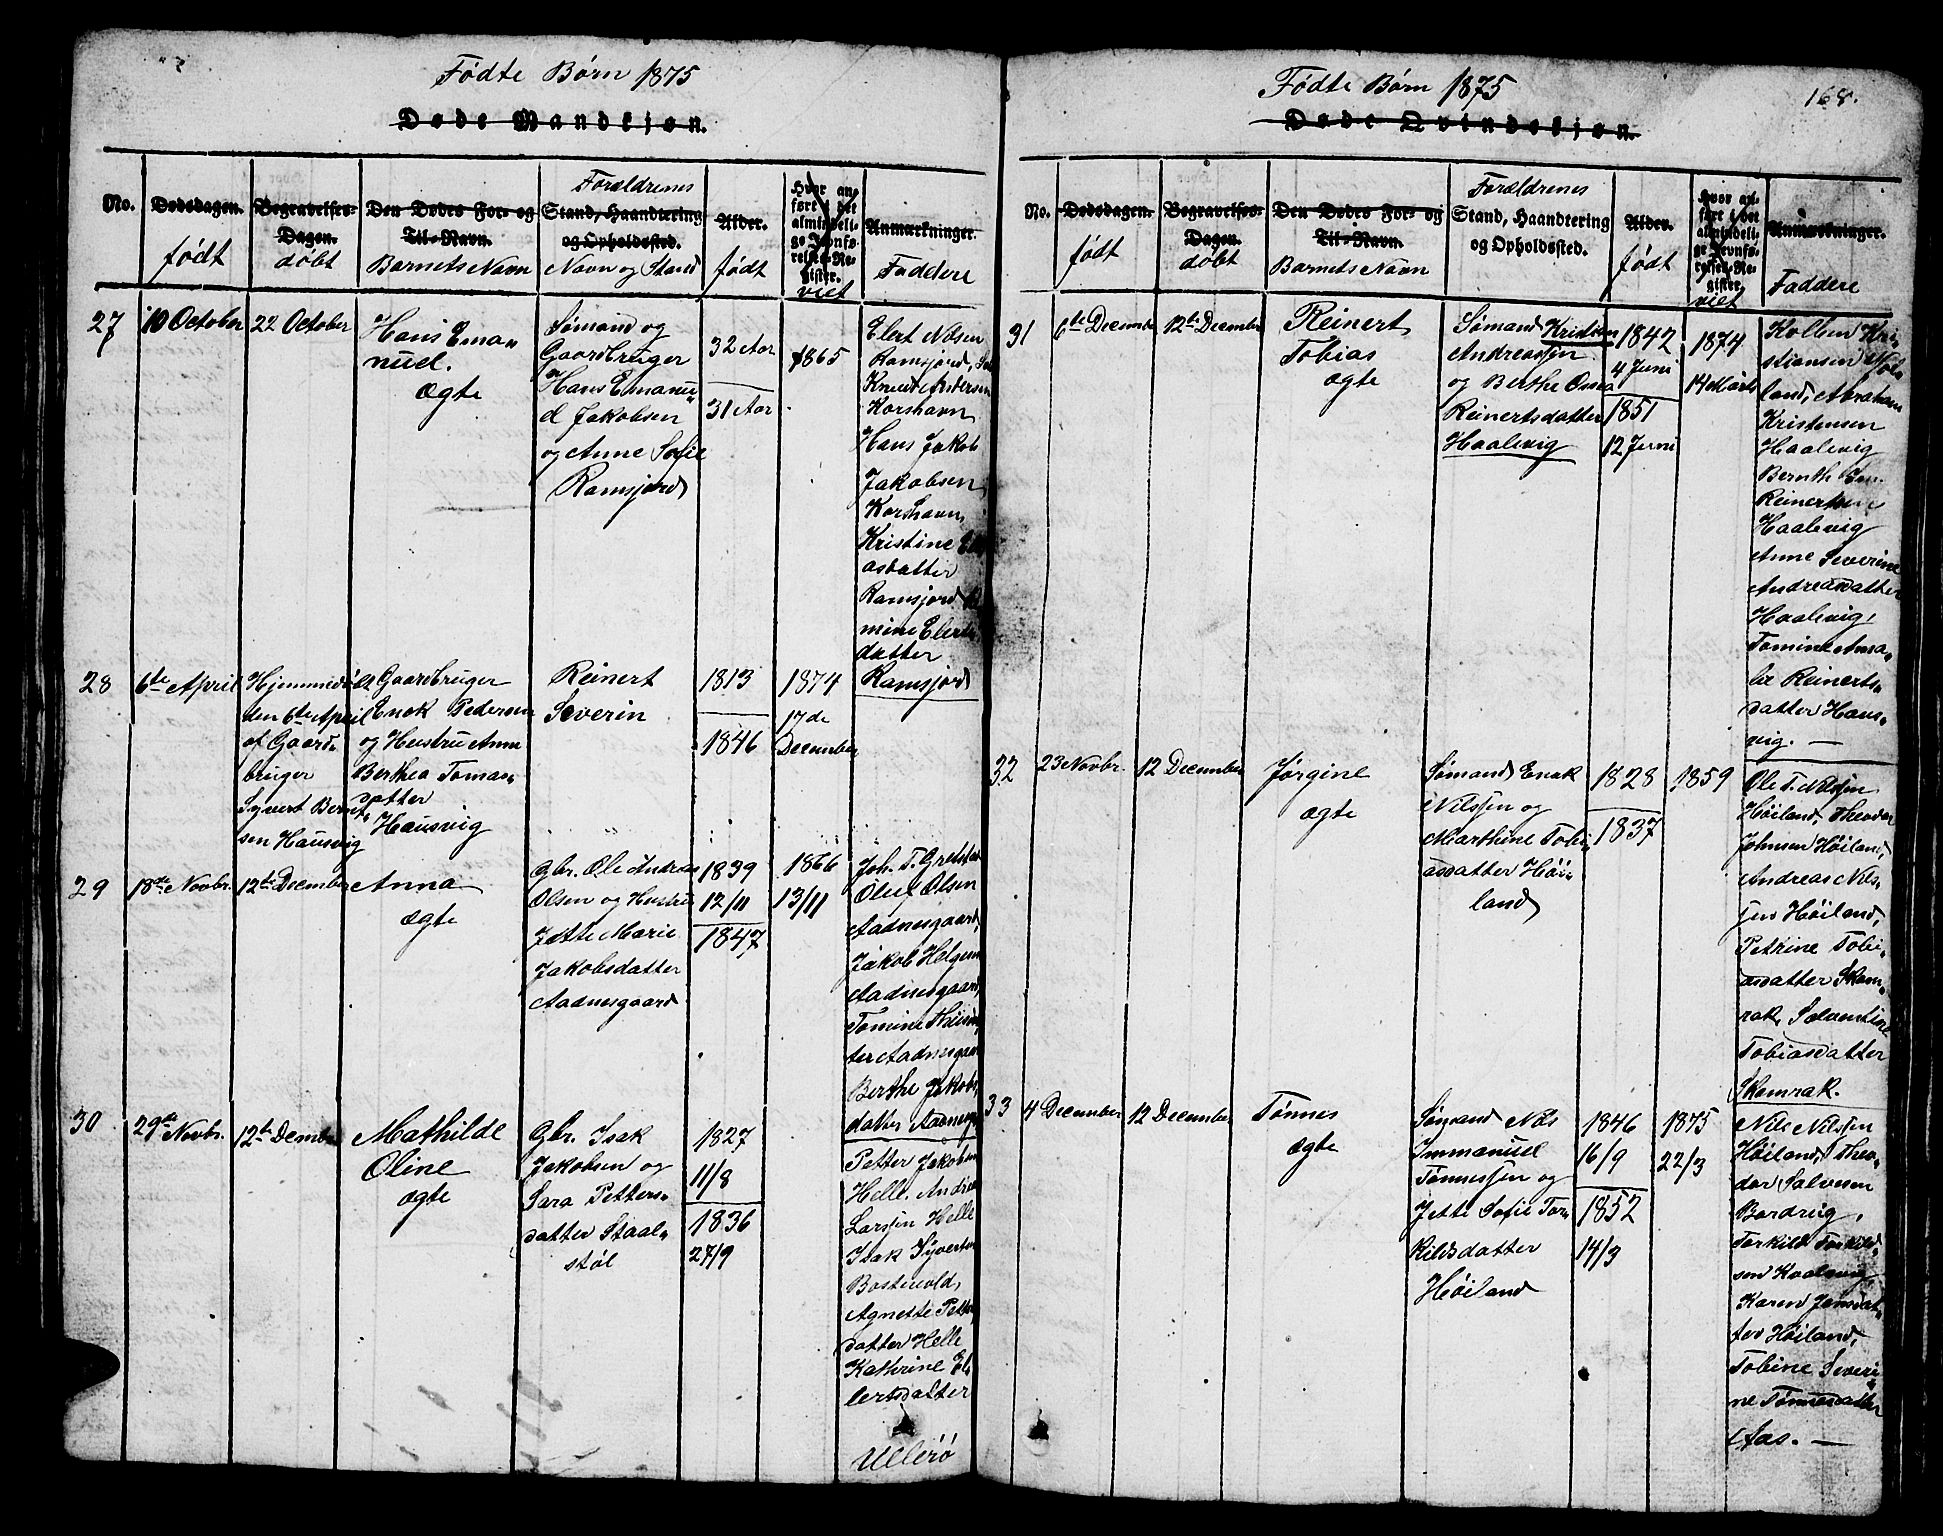 Fødte Børn 1875
Døde Mandkjøn.
No.
Dødsdagen.
født
Begravelses-
Dagen.
døbt
Den Dødes For- og
Til-Navn.
Barnets Navn
Forældrenes
Stand, Haandtering
og Opholdssted.
Navn og Stand
Alder.
født
Hvor an-
ført i det
almindeli-
ge Jevnfø-
relses-Re-
gister.
viet
Anmærkninger.
Faddere
27
10 October
22 October
Hans Ema-
nuel.
ægte
Sømand og
Gaardbruger
Hans Emanu-
el Jakobsen
og Anne Sofie
Ramsjord
32 Aar
31 Aar
1865
Elert Nilsen
Ramsjord,
Knud Andersen
Korshavn
Hans Jakob
Jakobsen
Korshavn,
Kristine
asdatter
Ramsjord
mine Elerts
datter
Ramsjord
28
6te April
Hjemmedøbt
den 6te April
af Gaard-
bruger
Syvert Bernt-
sen Hausvig
Gaardbruger
Enok Pedersen
og Hustru Anne
Berthea Tomas-
datter
Hausvig
Reinert
Severin
1813
1846
1874
17de
December
29
18te Novbr.
12te December
Anna
ægte
Gbr. Ole Andreas
Olsen og Hustru
Jette Marie
Jakobsdatter
Aadnesgaard
1839
12/11
1847
1866
13/11
Joh. T.
Oluf Olsen
Aadnesgaard,
Jakob Helgesen
Aadnesgaard,
Tomine
ter Aadnesgaard
Berthe Jakobs
datter Aadnesg.
30
29de Novbr.
12te Dember
Mathilde
Oline
ægte
Gbr. Isak
Jakobsen og
Sara Petters-
datter Staal-
støl
1827
11/8
1836
27/9
Petter Jakobsen
Helle. Andreas
Larsjen Helle
Isak Syverts
Agnette Petters
datter Helle
Kathrine El-
lertsdatter
Ullerø
Fødte Børn 1875
168.
Døde Qvindekjøn.
No.
Dødsdagen.
født
Begravelses-
Dagen.
døbt
Den Dødes For- og
Til-Navn.
Barnets Navn
Forældrenes
Stand, Haandtering
og Opholdssted.
Alder.
født
Hvor an-
ført i det
almindeli-
ge Jevnfø-
relses-Re-
gister.
viet
Anmærkninger.
Faddere
31
6te December
12te December
Reinert
Tobias
ægte
Sømand Kristian
Andreassen
og Berthe
Reinertsdatter
Haalevig
1842
4 Juni
1851
12 Juni
1874
14 Marts
Kolben Kri-
stiansen
land, Abraham
Kristensen
Haalevig
Bernth
Reinertsen
Haalevig
Anne Severine
Andreasdatter
Haalevig,
Tomine Ama-
lie Reinerts-
datter Haus-
vig. —
32
23 Novbr.
12 December
Jørgine
ægte
Sømand Enok
Nilssen og
Marthine Tobi-
asdatter Høi-
land
1828
1837
1859
Ole T. Nilssen
Høiland, Theodor
Johnsen Høiland,
Andreas Nils-
sen Høiland,
Petrine Tobi-
asdatter Skam-
rak, Salventine
Tobiasdatter
Skamrak.
33
4 December
12 December
Tønnes
ægte
Sømand Nils
Immanuel
Tønnessen og
Jette Sofie Tor-
kildsdatter
Høiland
1846
16/9
1852
14/9
1875
22/3
Nils Nilssen
Høiland, Theo-
dor Salvesen
Bardrug,
Torkild Torkild-
sen Haalevig
Karen Jensdat-
ter Høiland,
Tobine Severi-
ne Tønnesdatter
Aas. —